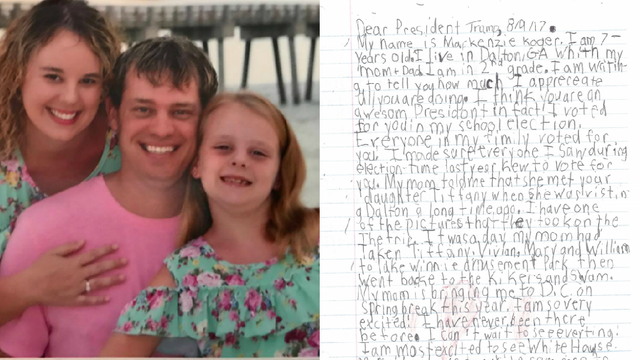 Dear President Trump, 8/9/17.
My name is Mackenzie Koger. I am 7-
years old. I live in Dalton, GA with my
mom + Dad. I am in 2nd grade. I am writin-
g to tell you how much I appreceate
all you are doing. I think you are an
awesom President in fact I voted
for you in my school election.
Everyone in my family voted for
you. I made sure everyone I saw during
election time last year knew to vote for
you. My mom told me that she met your
daughter Tiffany when she was visitin
g Dalton a long time ago. I have one
of the pictures that they took on the
the trip. It was a day my mom had
taken Tiffany, Vivian, Mary and William
to lake winnie amusement Park then
went back to the Kikers and swam.
My mom is bringing me to D.C. on
spring break this year. I am so very
excited. I have never been there
before. I can't wait to see everything.
I am most excited to see White House